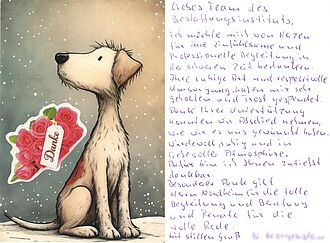 Danke
Liebes Team des
Bestattungsinstituts,
ich möchte mich von Herzen
für ihre einfühlsame und
Professionelle Begleitung in
der schweren Zeit bedanken.
Ihre ruhige Art und respektvolle
Umsorgung, haben mir sehr
geholfen und Trost gespendet.
Dank Ihrer Unterstützung
konnten wir Abschied nehmen,
wie wir es uns gewünscht haben.
Würdevoll, ruhig und in
liebevoller Atmosphäre.
Dafür bin ich Ihnen zutiefst
dankbar.
Besonderer Dank gilt
Herrn Nordheim für die tolle
Begleitung und Beratung
und Renate für die
tolle Rede.
Mit stillen Gruß